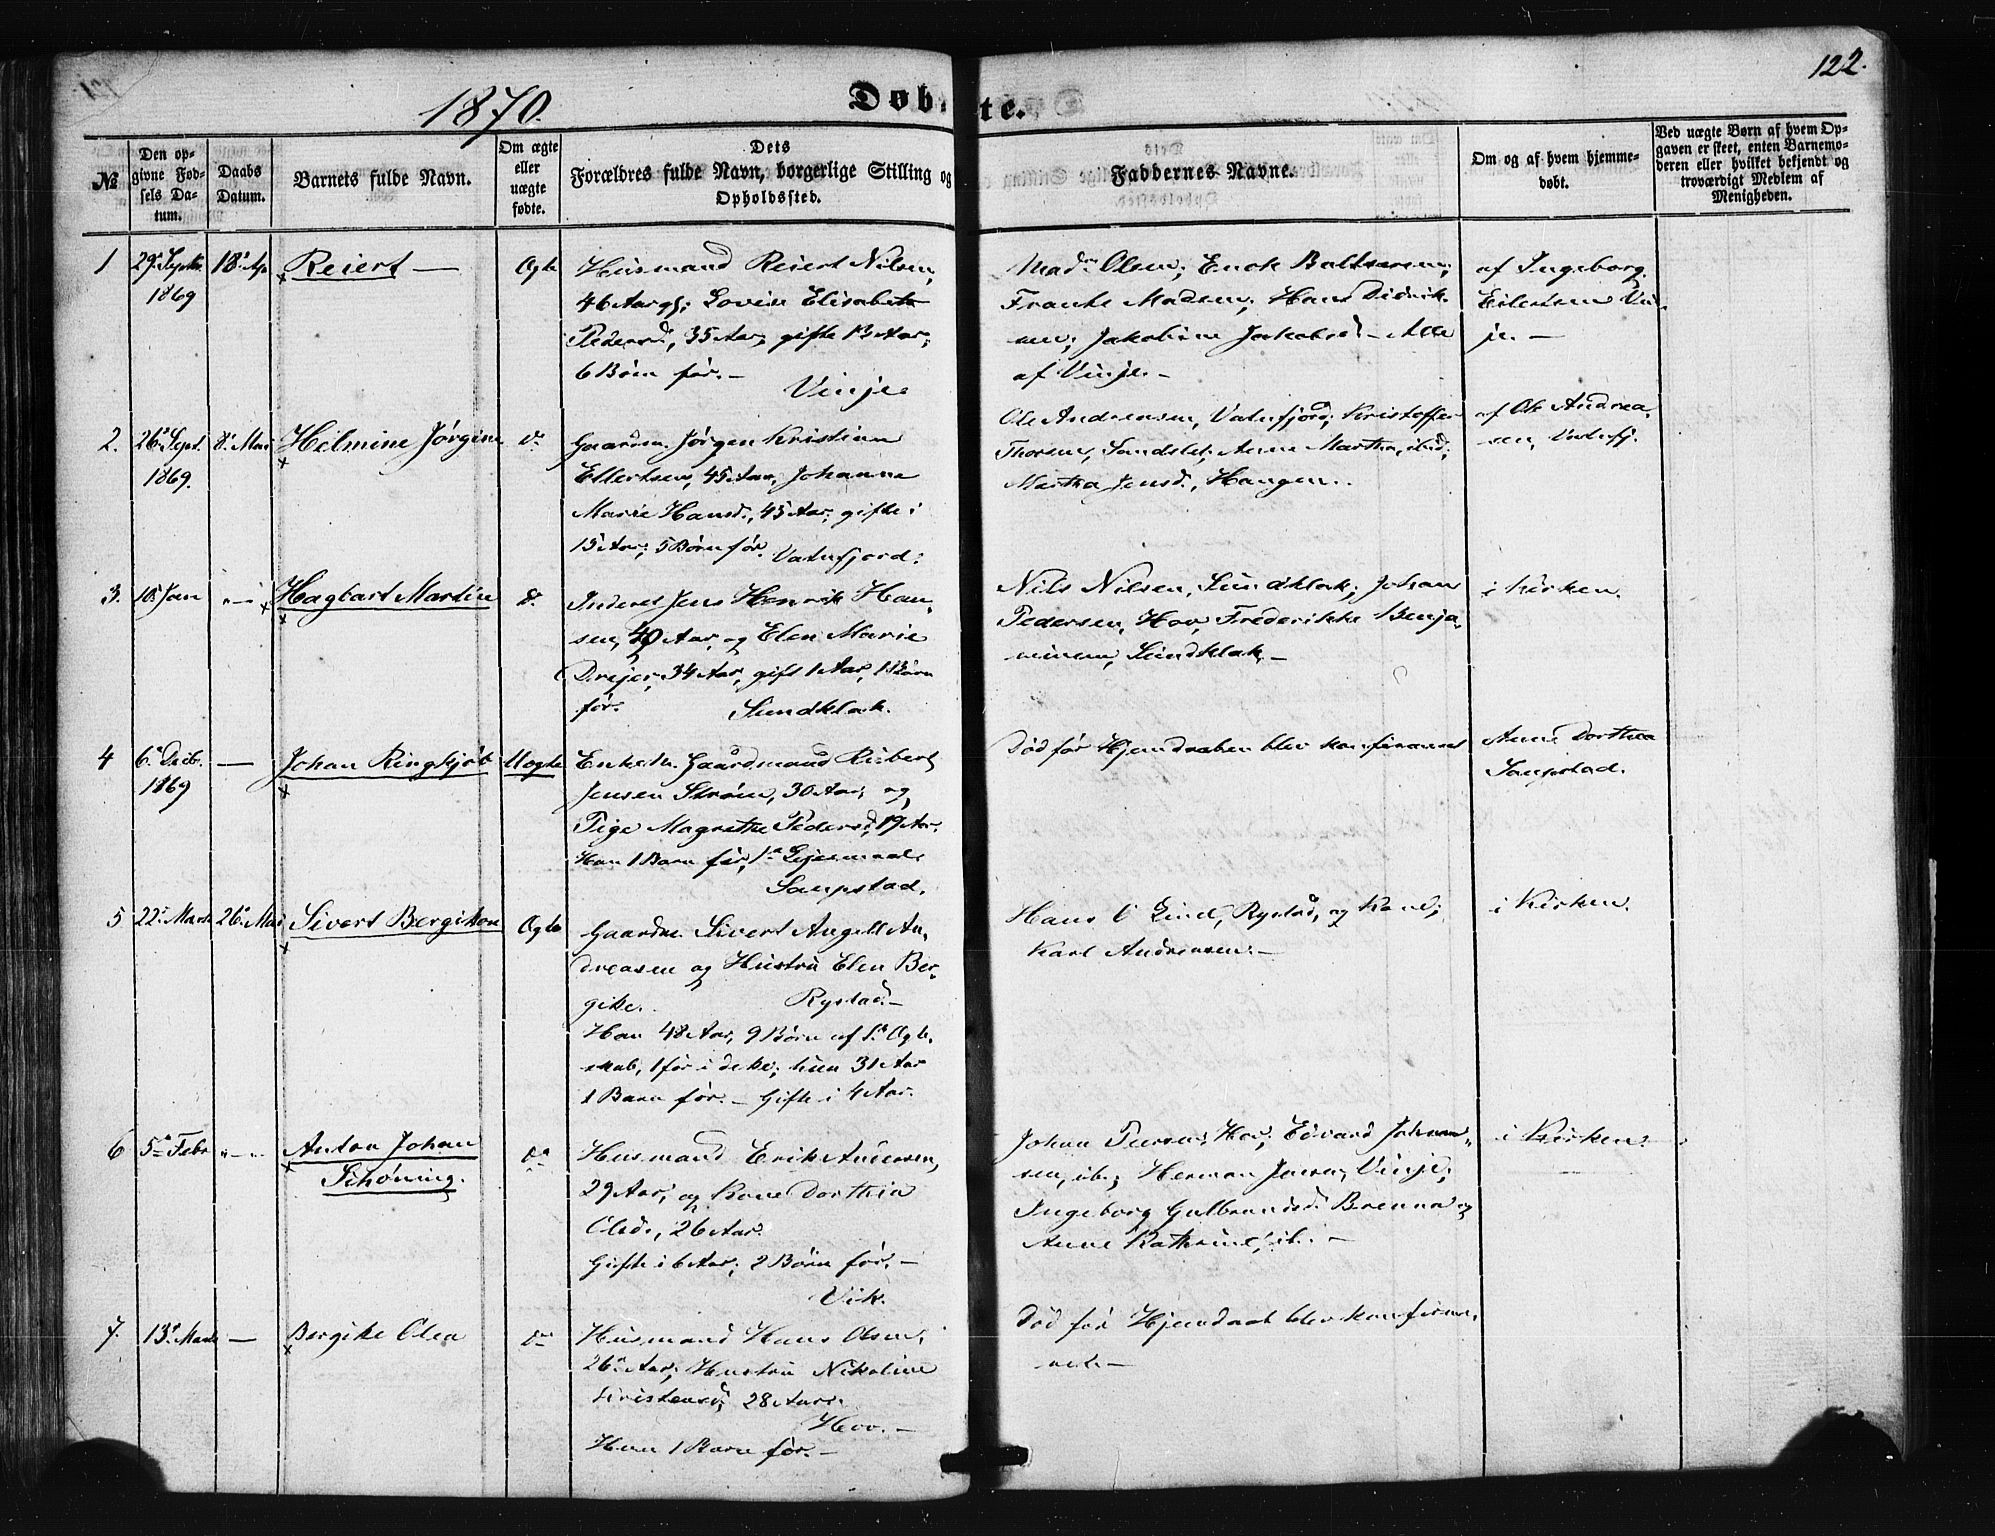 122.
1870. Døbte.
№
Den opgivne Fødsels Datum.
Daabs Datum.
Barnets fulde Navn.
Om ægte eller uægte fødte.
Dets Forældres fulde Navn, borgerlige Stilling og Opholdssted.
Faddernes Navne.
Om og af hvem hjemmedøbt.
Ved uægte Børn af hvem Opgaven er skeet, enten Barnemoderen eller hvilket bekjendt og troværdigt Medlem af Menigheden.
1 29 Septbr. 1869
18 Ap
Reiert —
Ægte
Husmand Reiert Nilsen,
46 Aar og Lovise Elisabeth
Pedersd, 35 Aar, gifte 13 Aar,
6 Børn før. —
Vinje
Mads Olsen; Enok Baltsersen;
Frants Madsen; Hans Didrik-
sen; Jakobine Jakobsd. — Alle
af Vinje. —
af Ingeborg
Eilertsen Vin-
je. —
2. 26 Sept. 1869.
8 Mai
Hilmine Jørgine
do
Gaardm. Jørgen Kristian
Ellertsen, 45 Aar, Johanna
Marie Hansd., 45 Aar, gifte i
15 Aar; 5 Børn før. Vatnfjord.
Ole Andreasen, Vatnfjord; Kristoffer
Thorsen, Sandslet; Anne Martha, ibid;
Martha Jensd., Haugen.
af Ole Andrea-
sen, Vatnfj.
3. 10 Jan
Hagbart Martin
do
Inderst Jens Henrik Han-
sen, 40 Aar, og Elen Marie
Drejer, 34 Aar, gift 1 Aar, 1 Barn
før. Sundklak.
Nils Nilsen, Sundklak; Johan
Pedersen, Hov, Frederikke Benja-
minsen, Sundklak. —
i Kirken.
4 6 Decbr. 1869
—
Johan Ringkjøb
Uægte
Enkem. Gaardmand Riibert
Jensen Strøm, 30 Aar, og
Pige Magrethe Pedersd, 19 Aar.
Han 1 Barn før, 1ste Leiermaal.
Saupstad.
Død før Hjemdaaben blev konfirmeret
Anne Dorthea
Saupstad.
5 22 Marts
26 Mai
Sivert Bergiton
Ægte
Gaardm. Sivert Angell An-
dreasen og Hustru Elen Ber-
gitte. Rystad. —
Han 48 Aar, 9 Børn af 1ste Ægte-
skab, 1 før i dette; hun 31 Aar
1 Barn før. — Gifte i 4 Aar.
Hans Lind, Rystad, og Kone;
Karl Andreasen. —
i Kirken.
6 5 Febr
Anton Johan
Schøning.
do
Husmand Erik Andersen,
29 Aar; og Kone Dorthea
Olsd., 26 Aar.
Gifte i 6 Aar; 2 Børn før. —
Vik.
Johan Peersen, Hov; Edvard Johan-
sen, ib; Herman Jensen, Vinje;
Ingeborg Gulbrandsd. Brenna og
Anne Kathrine, ib. —
i Kirken.
7. 13 Marts
—
Bergitte Olea
do
Husmand Hans Olsen,
26 Aar; Hustru Nikoline
Kristensd, 28 Aar.
Hov. —
Hun 1 Barn før. —
Død før Hjemdaab blev konfirme-
ret. —